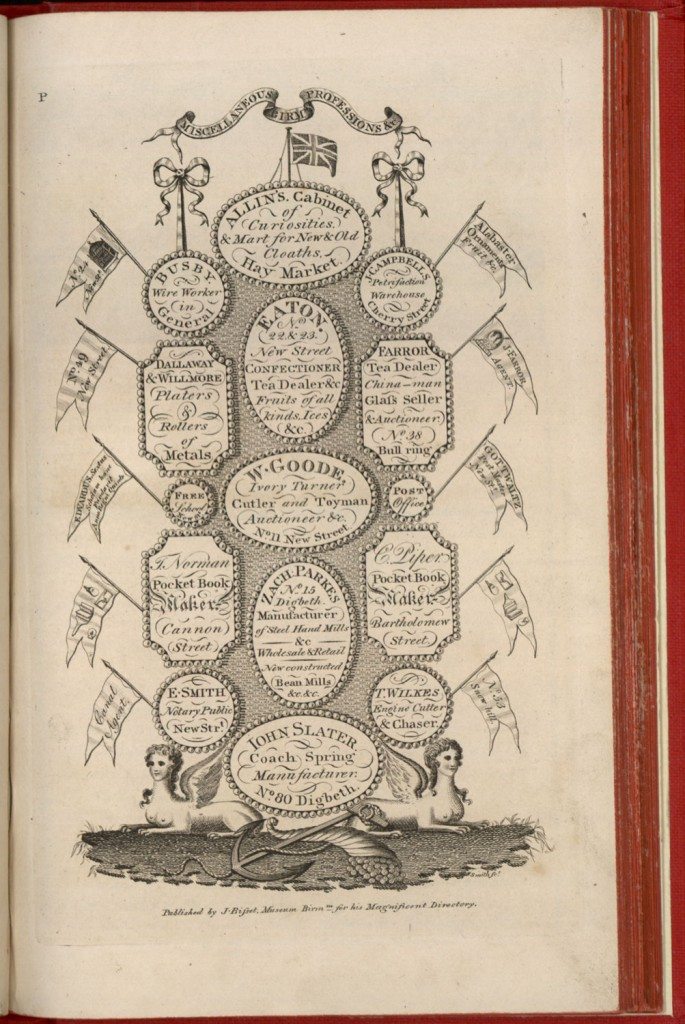 P
MISCELLANEOUS
BIRMM
PROFESSIONS &c
ALLIN'S Cabinet
of
Curiosities,
& Mart for New & Old
Cloaths,
Hay Market
BUSBY
Wire Worker
in
General
CAMPBELLS
Petrifaction
Warehouse
Cherry Street
Alabaster
Ornaments
Fruit &c.
EATON
Nos.
22 & 23.
New Street
CONFECTIONER
Tea Dealer &c
Fruits of all
kinds, Ices
&c.
No. 49
New Street
DALLAWAY
& WILLMORE
Platers
&
Rollers
of
Metals
FARROR
Tea Dealer
China-man
Glaſs Seller
& Auctioneer.
No. 38
Bull ring
J. FARROR
Agent
W. GOODE
Ivory Turner
Cutler and Toyman
Auctioneer &c.
No 11 New Street
FREE
School
POST
Office
GOTTWALTZ
Post Master
New Str.
J. Norman
Pocket Book
Maker
Cannon
Street
C. Piper
Pocket Book
Maker
Bartholomew
Street.
ZACH. PARKES
No. 15
Digbeth.
Manufacturer
of Steel Hand Mills
&c
Wholesale & Retail
New constructed
Bean Mills
&c. &c.
E. SMITH
Notary Public
New Str.
T. WILKES
Engine Cutter
& Chaser.
Snow hill
JOHN SLATER
Coach Spring
Manufacturer.
No. 80 Digbeth.
Smith sc.
Published by J. Biſset, Museum Birmm. for his Magnificent Directory.